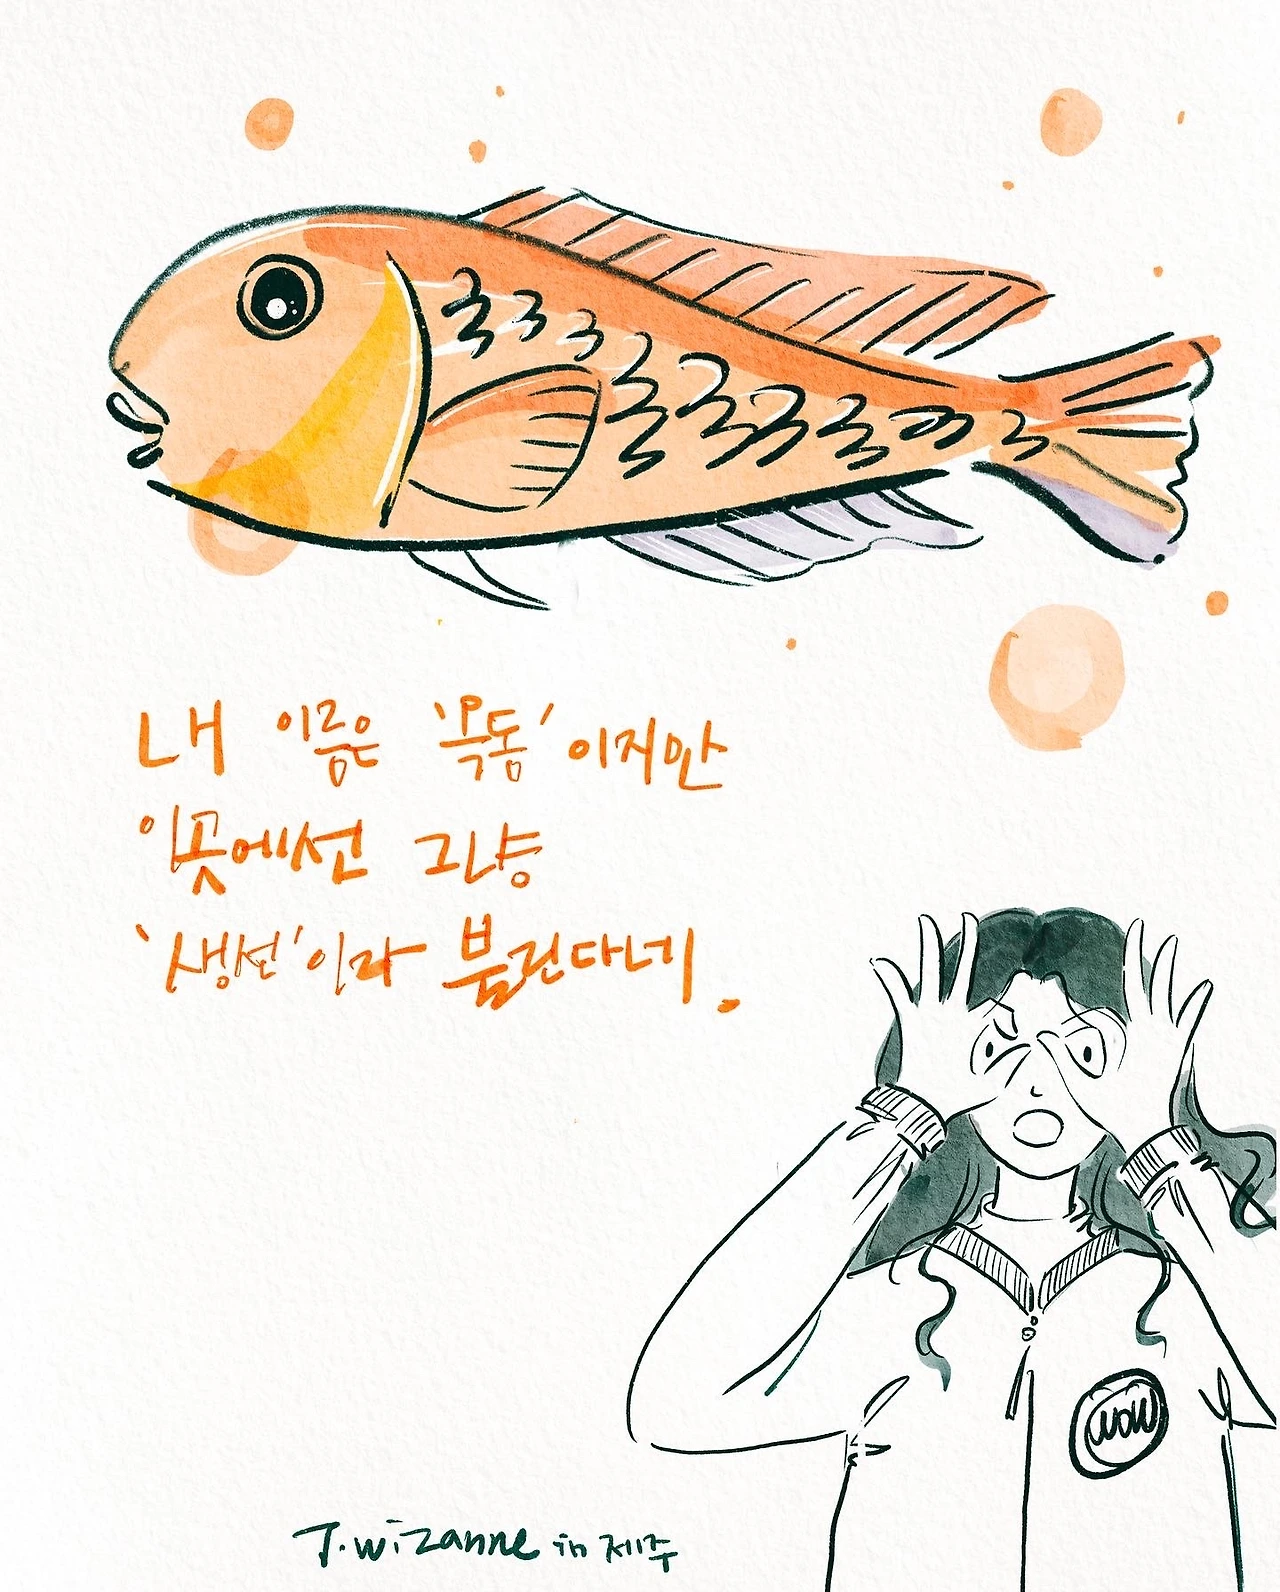 내 이름은 '옥돔'이지만
이곳에선 그냥
'생선'이라 불린다네.
WOW
J.wizanne in 제주